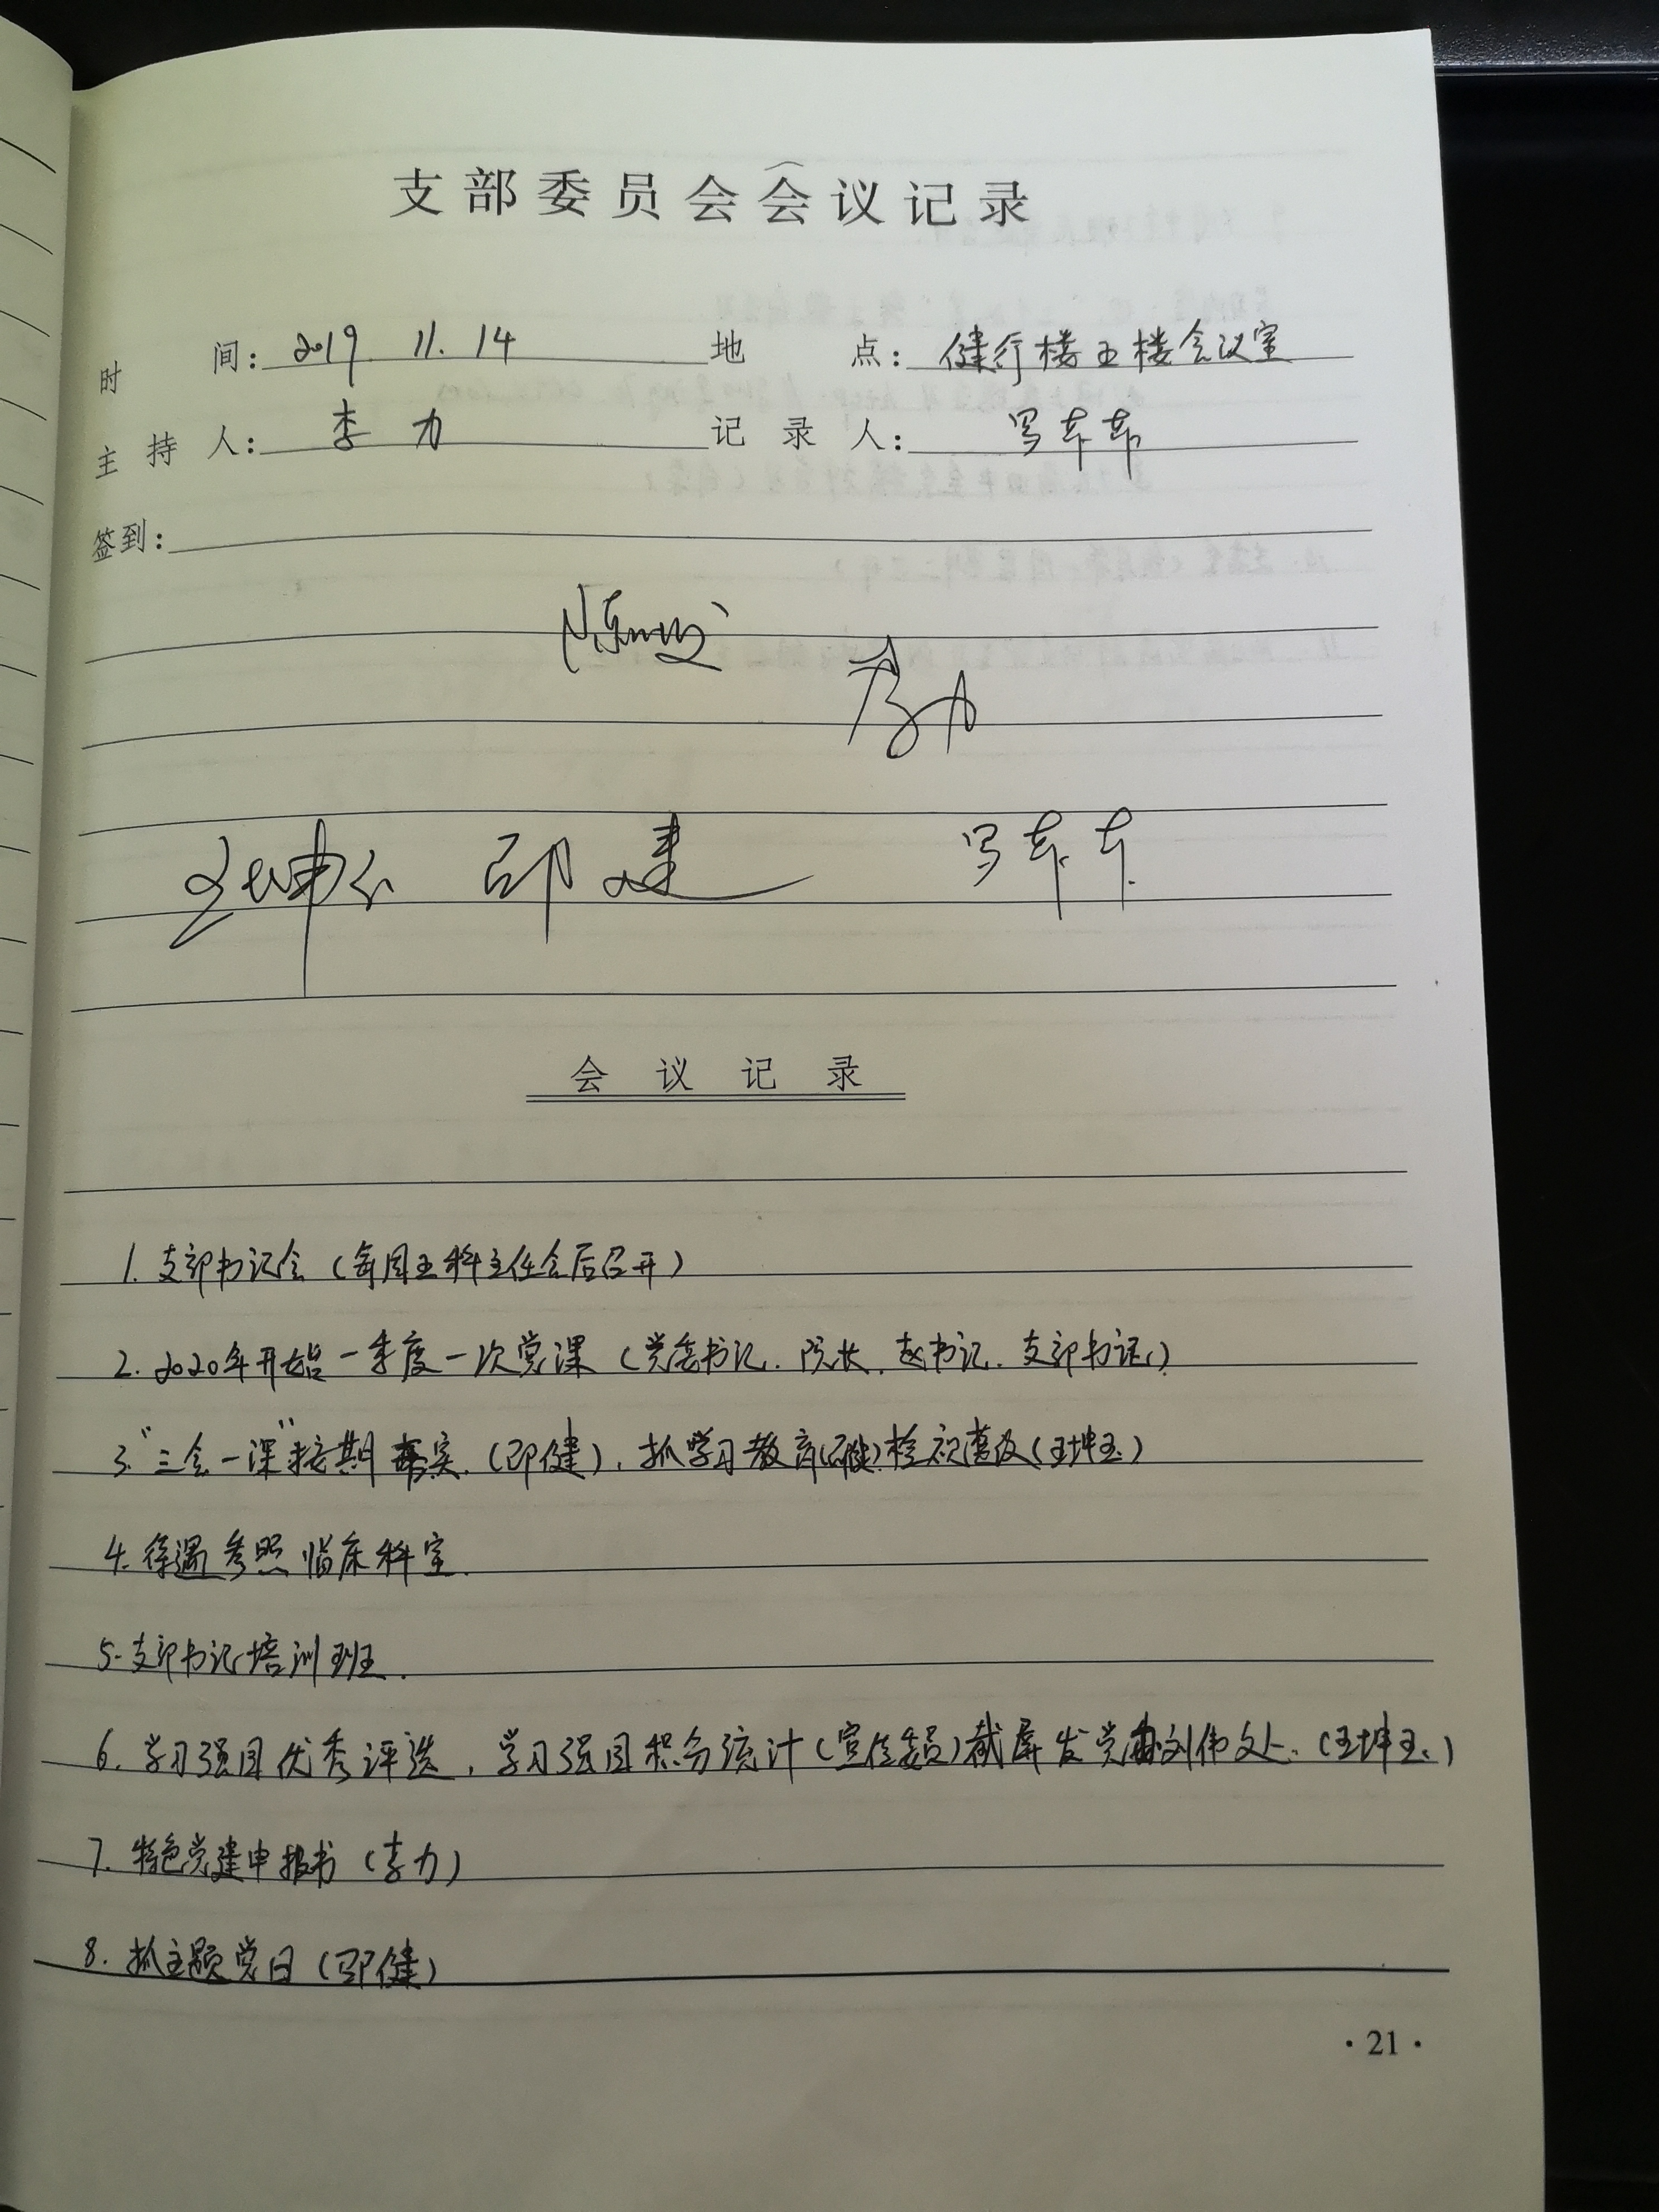 支部委员会会议记录
时间: 2019. 11. 14 地点: 健行楼五楼会议室
主持人: 李力 记录人:
签到:
李力
邵建
会议记录
1. 支部书记会（每周五科主任会后召开）
2. 2020年开始一季度一次党课（党委书记. 院长. 赵书记. 支部书记）
3. “三会一课”按期落实（邵健）, 抓学习教育（邵健）检视整改（王坤玉）
4. 待遇参照临床科室.
5. 支部书记培训班.
6. 学习强国优秀评选, 学习强国积分统计（宣传委员）截屏发党办刘伟处.（王坤玉）
7. 特色党建申报书（李力）
8. 抓主题党日（邵健）
·21·